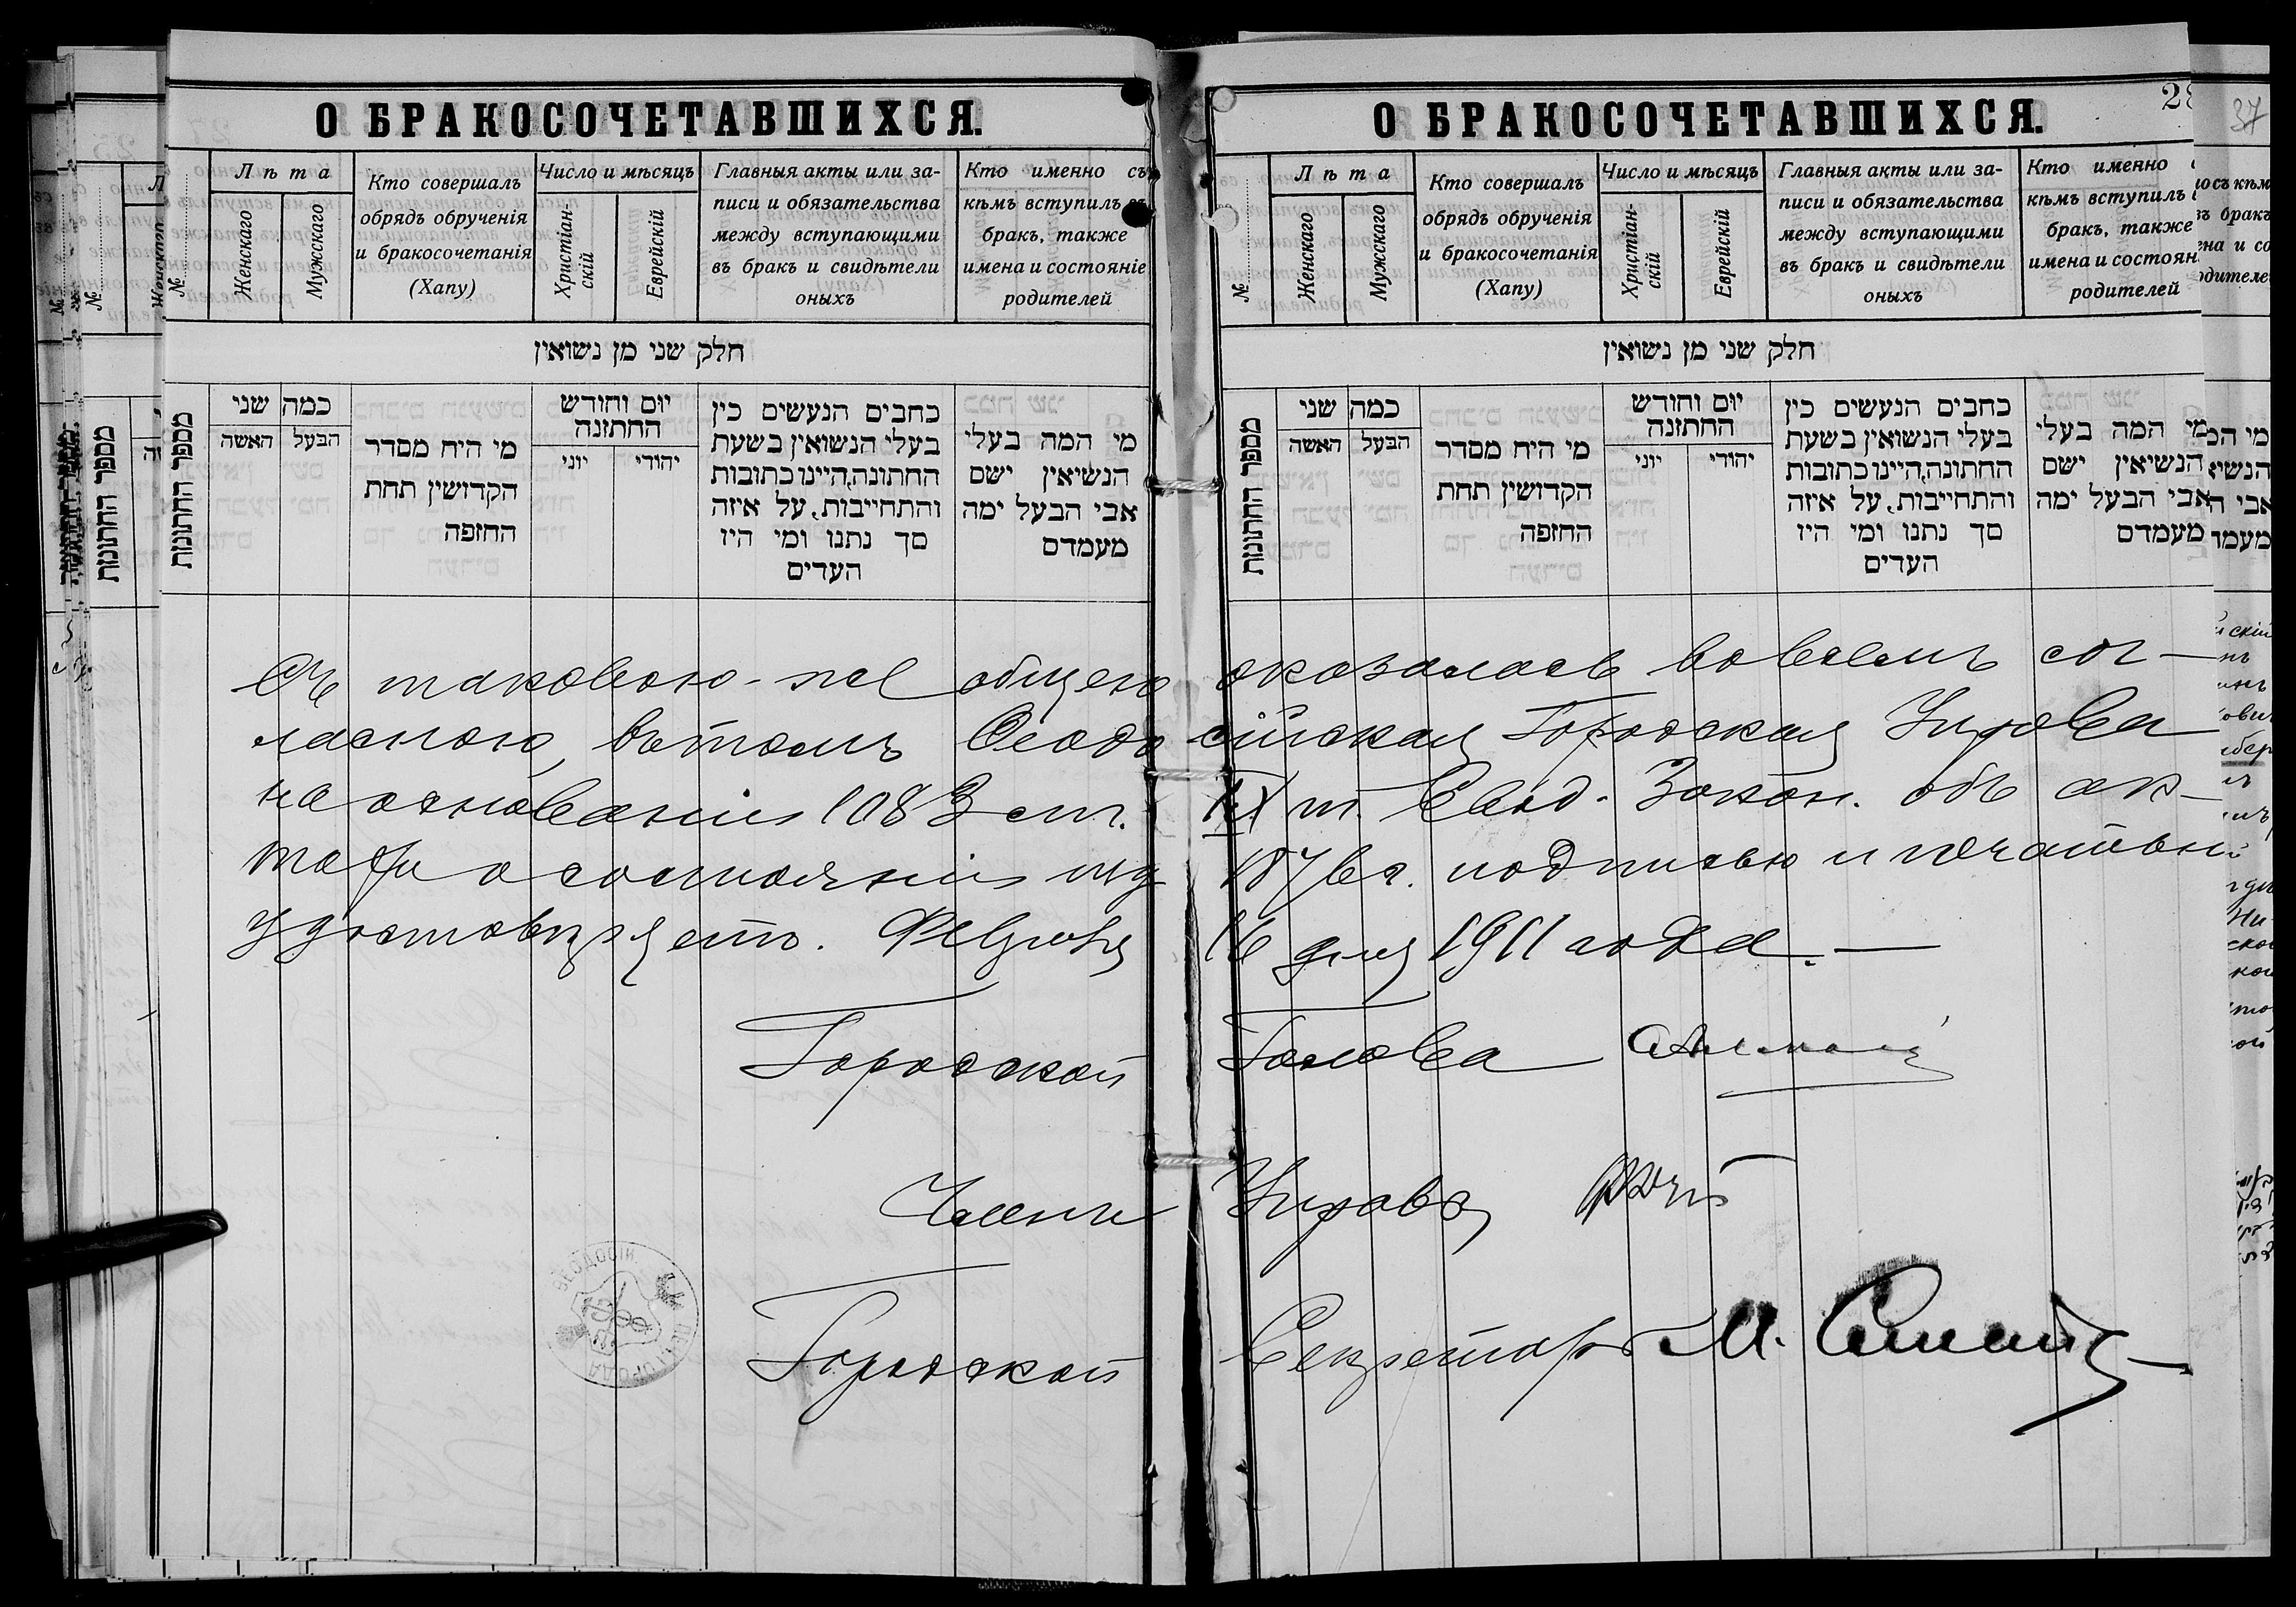 О БРАКОСОЧЕТАВШИХСЯ.
№
Лѣта
Женскаго
Мужскаго
Кто совершалъ
обрядъ обрученія
и бракосочетанія
(Хапу)
Число и мѣсяцъ
Христіан-
скій
Еврейскій
Главныя акты или за-
писи и обязательства
между вступающими
въ бракъ и свидѣтели
оныхъ
Кто именно съ
кѣмъ вступилъ въ
бракъ, также
имена и состояніе
родителей
חלק שני מן נשואין
מספר החתונות
כמה שני
האשה
הבעל
מי היח מסדר
הקדושין תחת
החופה
יום וחודש
החתונה
יוני
יהודי
כתבים הנעשים כין
בעלי הנשואין בשעת
החתונה, היינו כתובות
והתחייבות, על איזה
סך נתנו ומי היו
העדים
מי המה בעלי
הנשיאין ישם
אבי הבעל ימה
מעמדם
О БРАКОСОЧЕТАВШИХСЯ.
28
37
№
Лѣта
Женскаго
Мужскаго
Кто совершалъ
обрядъ обрученія
и бракосочетанія
(Хапу)
Число и мѣсяцъ
Христіан-
скій
Еврейскій
Главныя акты или за-
писи и обязательства
между вступающими
въ бракъ и свидѣтели
оныхъ
Кто именно
кѣмъ вступилъ
бракъ, также
имена и состоян
родителей
חלק שני מן נשואין
מספר החתונות
כמה שני
האשה
הבעל
מי היח מסדר
הקדושין תחת
החופה
יום וחודש
החתונה
יוני
יהודי
כתבים הנעשים כין
בעלי הנשואין בשעת
החתונה, היינו כתובות
והתחייבות, על איזה
סך נתנו ומי היו
העדים
מי המה בעלי
הנשיאין ישם
אבי הבעל ימה
מעמדם
Съ таковою-же общею оказалась во всемъ сог-
ласною, въ томъ Ѳеодосійская Городская Управа
на основаніи 1083 ст. IX т. Свод. Закон. объ ак-
тахъ о состояніи изд. 1876 г. подписью и печатью
удостовѣряетъ. Февраля 16 дня 1911 года.—
Городской Голова
Члены Управы
Городской Секретарь М.
ѲЕОДОСІЙ
ГОРОДА